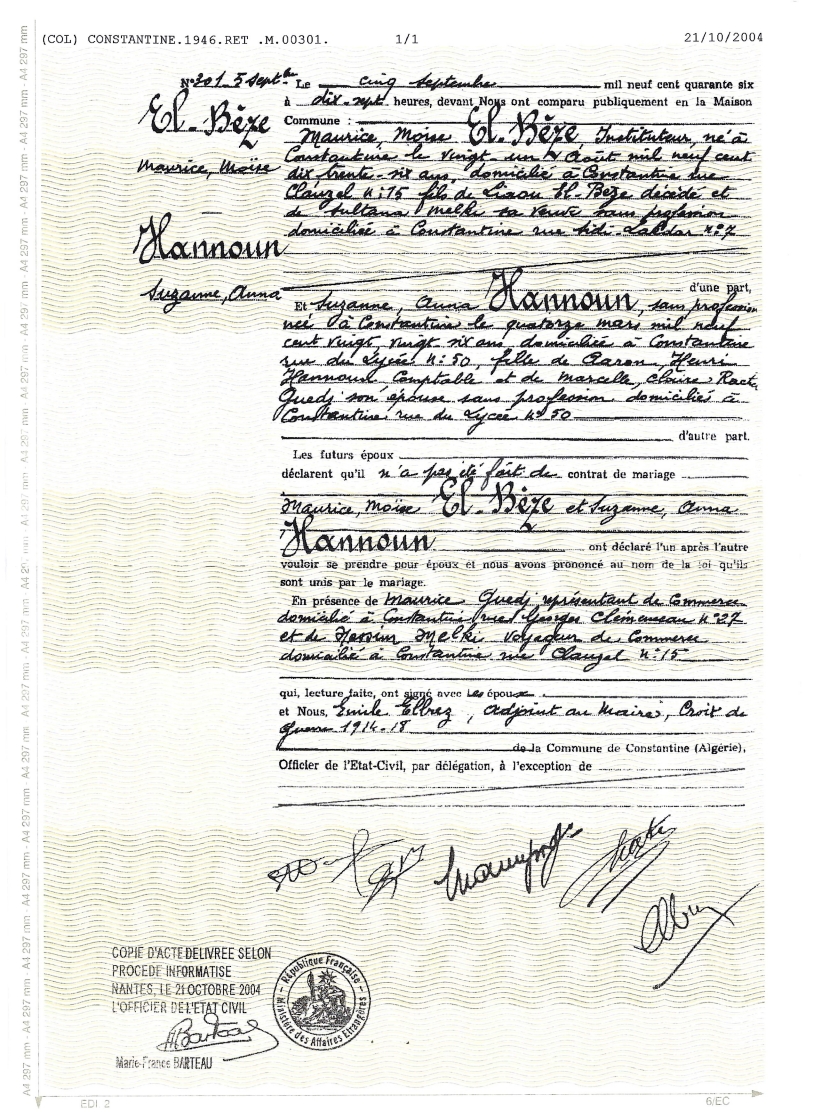 (COL) CONSTANTINE.1946.RET .M.00301. 1/1 21/10/2004
N° 301 5 Septbre
El-Bèze
Maurice, Moïse
Hannoun
Suzanne, Anna
Le cinq septembre mil neuf cent quarante six
à dix-sept heures, devant Nous ont comparu publiquement en la Maison
Commune :
Maurice, Moïse El-Bèze, Instituteur, né à
Constantine le vingt-un Août mil neuf cent
dix trente-six ans, domicilié à Constantine rue
Clauzel N°15 fils de Liaou El-Bèze décédé et
de Sultana Melki sa veuve sans profession
domiciliée à Constantine rue Sidi-Lakdar N°7
d'une part,
Et Suzanne, Anna Hannoun, sans profession
née à Constantine le quatorze mars mil neuf
cent vingt, vingt six ans, domiciliée à Constantine
rue du Lycée N°50, fille de Aaron, Henri
Hannoun Comptable et de Marcelle, Claire
Guedj son épouse sans profession domiciliés à
Constantine rue du Lycée N°50
d'autre part.
Les futurs époux
déclarent qu'il n'a pas été fait de contrat de mariage
Maurice, Moïse El-Bèze et Suzanne, Anna
Hannoun ont déclaré l'un après l'autre
vouloir se prendre pour époux et nous avons prononcé au nom de la loi qu'ils
sont unis par le mariage.
En présence de Maurice Guedj représentant de Commerce
domicilié à Constantine rue Georges Clémenceau N°27
et de Nessim Melki Voyageur de Commerce
domicilié à Constantine rue Clauzel N°15
qui, lecture faite, ont signé avec les époux
et Nous, Emile Elbrez, Adjoint au Maire, Croix de
guerre 1914-18
de la Commune de Constantine (Algérie),
Officier de l'Etat-Civil, par délégation, à l'exception de
COPIE D'ACTE DELIVREE SELON
PROCEDE INFORMATISE
NANTES, LE 21 OCTOBRE 2004
L'OFFICIER DE L'ETAT CIVIL
Marie-France BARTEAU
République Française
Ministère des Affaires Etrangères
EDI 2
6/EC
A4 297 mm - A4 297 mm - A4 297 mm - A4 297 mm - A4 297 mm - A4 297 mm - A4 297 mm - A4 297 mm - A4 297 mm